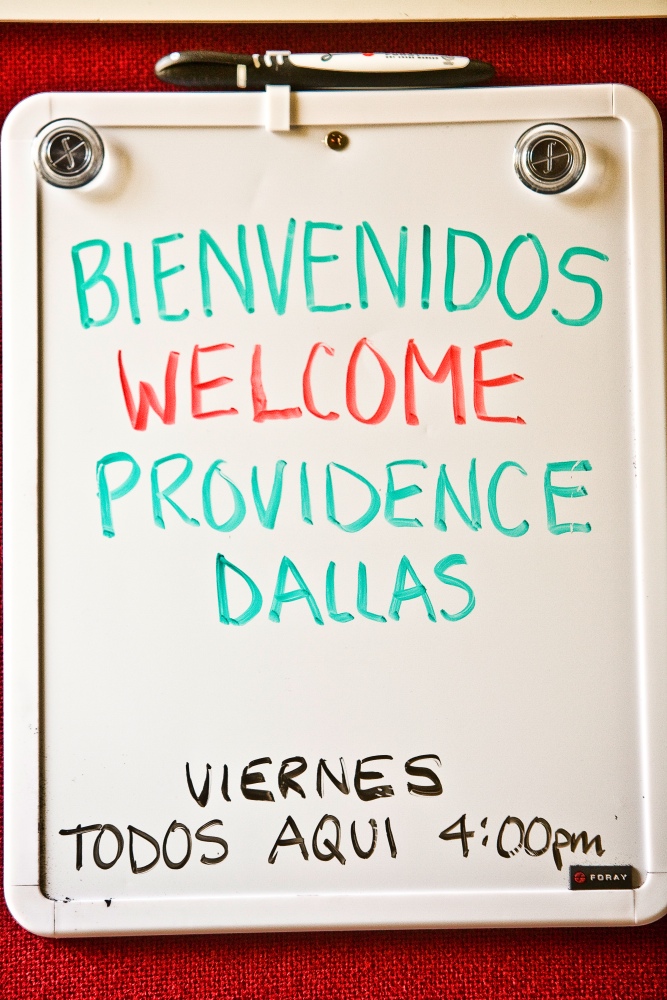 BIENVENIDOS
WELCOME
PROVIDENCE
DALLAS
VIERNES
TODOS AQUI 4:00pm
FORAY